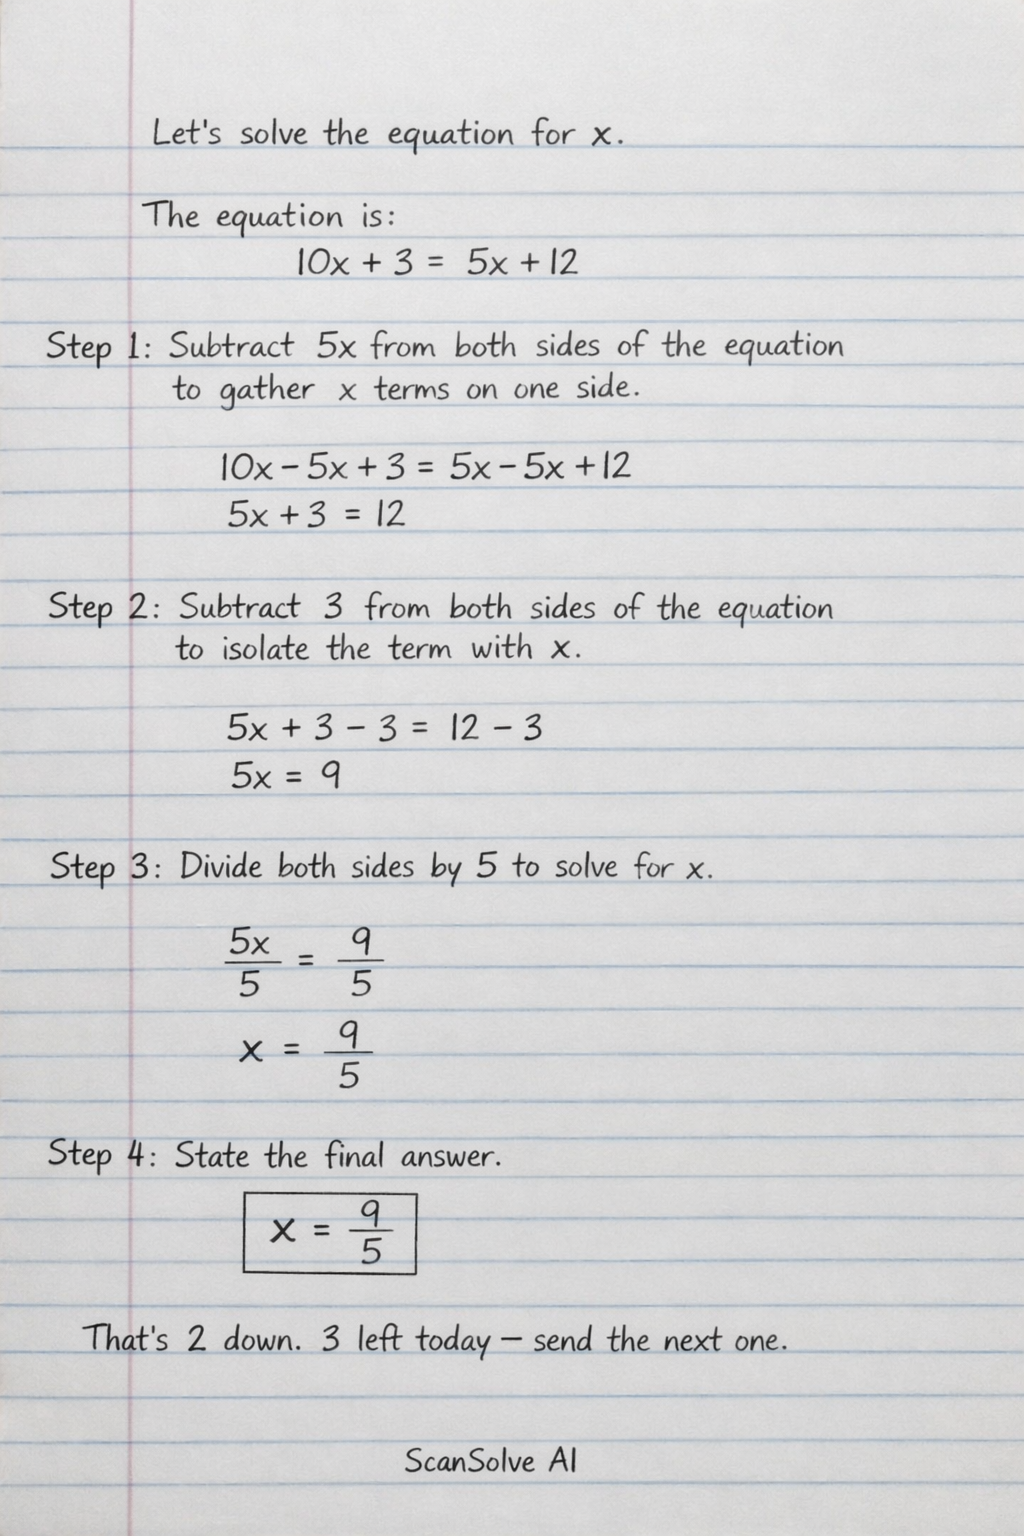 Let's solve the equation for x.
The equation is:
10x + 3 = 5x + 12
Step 1: Subtract 5x from both sides of the equation
to gather x terms on one side.
10x - 5x + 3 = 5x - 5x + 12
5x + 3 = 12
Step 2: Subtract 3 from both sides of the equation
to isolate the term with x.
5x + 3 - 3 = 12 - 3
5x = 9
Step 3: Divide both sides by 5 to solve for x.
5x/5 = 9/5
x = 9/5
Step 4: State the final answer.
x = 9/5
That's 2 down. 3 left today — send the next one.
ScanSolve AI